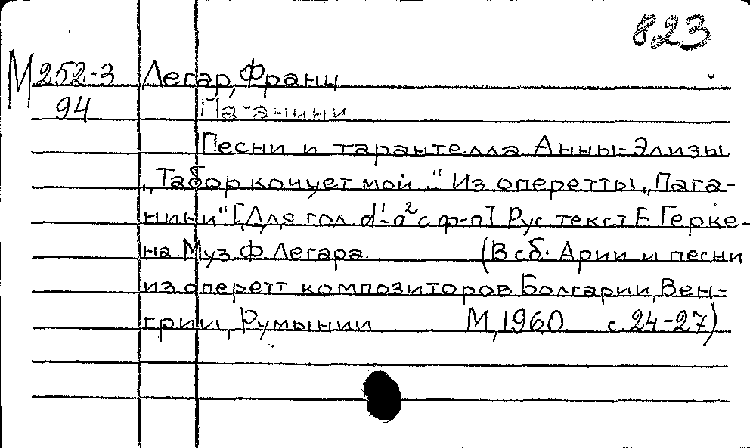 823
М 252-3 Легар, Франц
94 Паганини
Песни и тарантелла Анны-Элизы
"Табор кочует мой..." Из оперетты "Пага-
нини" [Для гол. d¹-a² с ф-п] Рус текст Е Герке-
на Муз Ф. Легара. (В сб. Арии и песни
из оперетт композиторов Болгарии, Вен-
грии, Румынии М, 1960 с. 24-27)